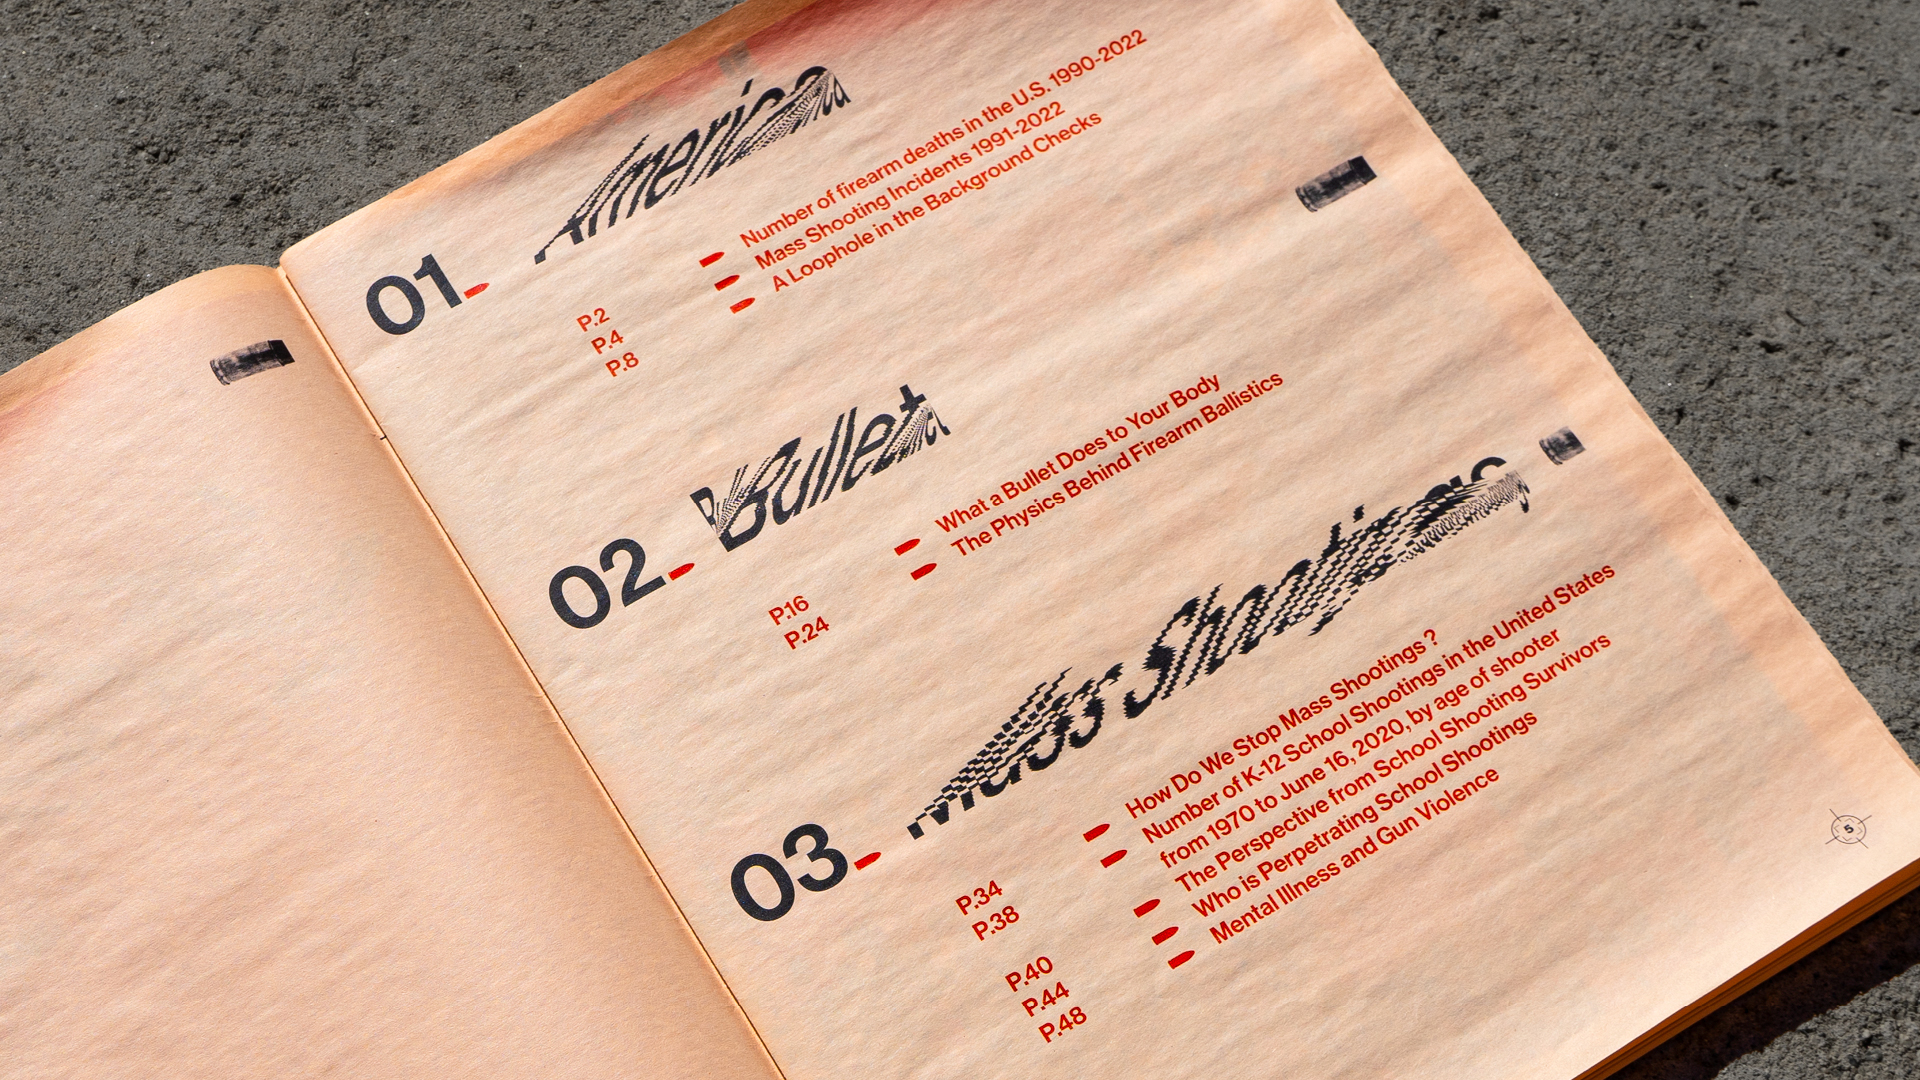 01.
America
P.2 Number of firearm deaths in the U.S. 1990-2022
P.4 Mass Shooting Incidents 1991-2022
P.8 A Loophole in the Background Checks
02.
Bullet
P.16 What a Bullet Does to Your Body
P.24 The Physics Behind Firearm Ballistics
03.
Mass Shootings
P.34 How Do We Stop Mass Shootings ?
P.38 Number of K-12 School Shootings in the United States
from 1970 to June 16, 2020, by age of shooter
P.40 The Perspective from School Shooting Survivors
P.44 Who is Perpetrating School Shootings
P.48 Mental Illness and Gun Violence
5